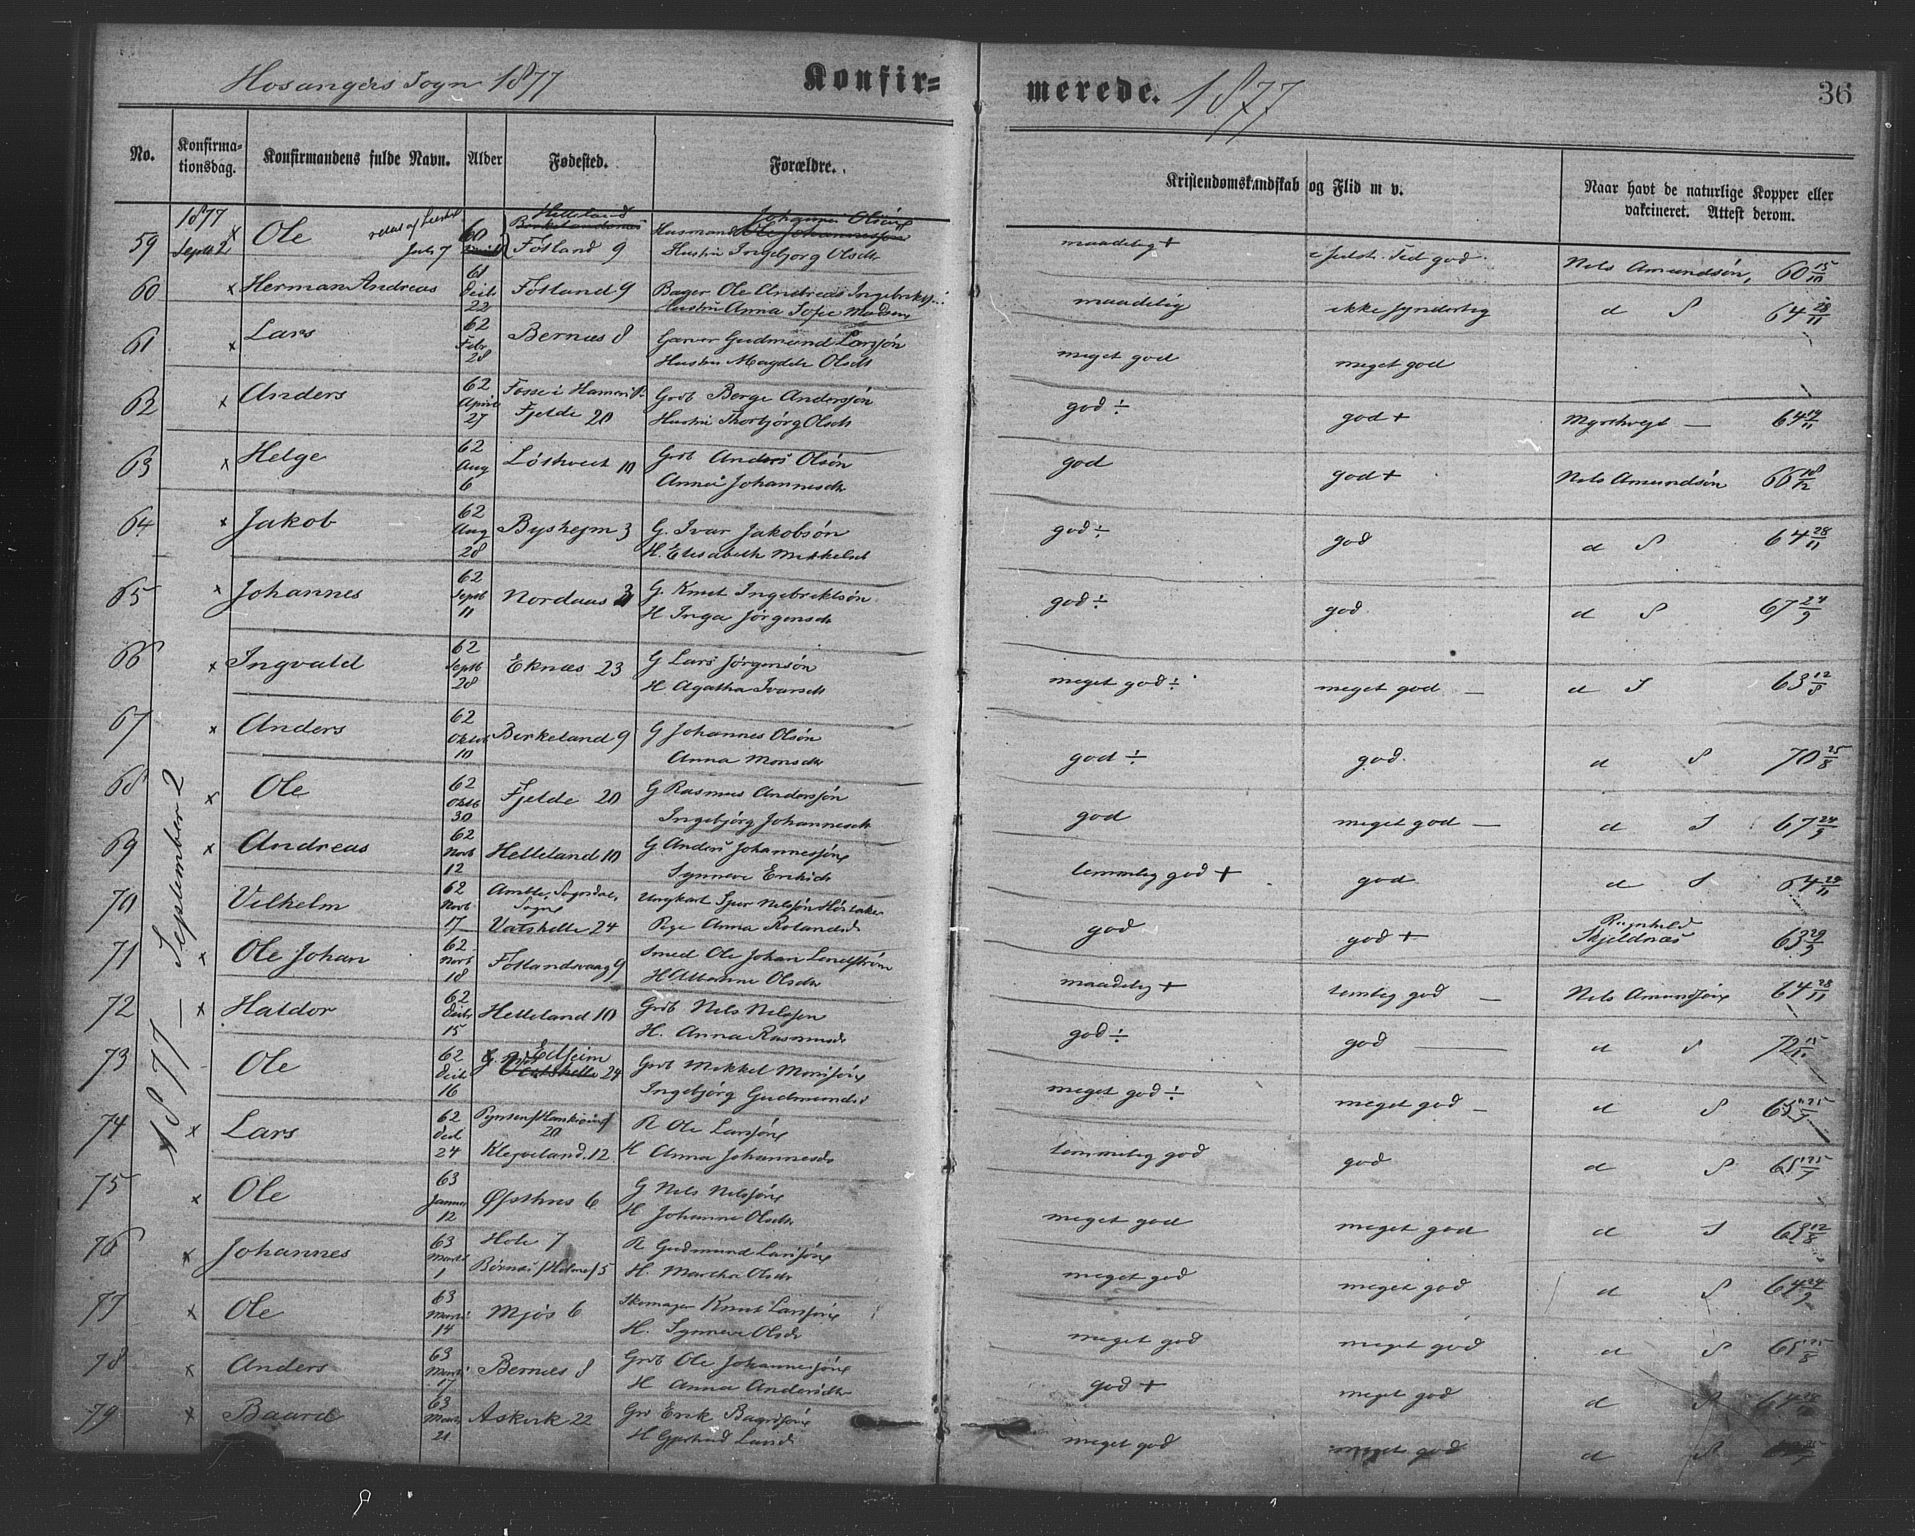 Hosangers Sogn 1877
Konfir=
merede. 1877
36
No.
Konfirma-
tionsdag.
Konfirmandens fulde Navn.
Alder
Fødested.
Forældre.
Kristendomskundskab og Flid m v.
Naar havt de naturlige Kopper eller
vakcineret. Attest derom.
1877
Helleland
Johannes Olsøn
59 Septb 2 x Ole Juli 7 60 Fotland 9 Husmand
Hustru Ingebjorg Olsdtr
maadelig + god Nils Amundsøn, 60 15/10
60 x Herman Andreas 61 Decb 22 Fotland 9 Bager Ole Andreas Ingebrikts
Hustru Anna Sofie Madsen
maadelig ikke synderlig d S 64 28/11
61 x Lars 62 Febr 28 Bernæs 8 Garver Gudmund Larsøn
Hustru Magdele Olsdtr
meget god meget god
62 x Anders 62 April 27 Fosse i Hamre
Fjelde 20
Grdb Berge Andersøn
Hustru Thorbjørg Olsdtr
god ÷ god + Myrthvegt — 64 19/11
63 x Helge 62 Aug 6 Løtkveit 10 Grdb Anders Olsøn
Anna Johannesdtr
god god + Nils Amundsøn 66 18/12
64 x Jakob 62 Aug 28 Bysheim 3 G. Ivar Jakobsøn
H Elisabeth Mikkelsdt
god ÷ god d S 64 28/11
65 x Johannes 62 Septb 11 Nordaas 3 G. Knut Ingebriktsøn
H Inga Jørgensdtr
god ÷ god d S 67 24/9
66 x Ingvald 62 Septb 28 Eknæs 23 G Lars Jørgensøn
H Agatha Ivarsdtr
meget god ÷ meget god — d S 63 12/8
67 x Anders 62 Oktob 10 Birkeland 9 G Johannes Olsøn
Anna Monsdtr
god ÷ god d S 70 25/8
68 x Ole 62 Oktb 30 Fjelde 20 G Rasmus Andersøn
Ingebjørg Johannesdtr
god meget god — d S 67 24/9
69 x Andreas 62 Novb 12 Helleland 10 G. Anders Johannessøn
Synneve Eriksdtr
temmelig god + god d S 64 28/11
70 Vilhelm 62 Novb 17 Amble, Sogndals
Sogn
Vatshelle 24
Ungkarl Iver Nilsøn Høstaker
Pige Anna Rolandsd
god god + Ragnhild
Skjeldnæs 63 29/9
71 x Ole Johan 62 Novb 18 Fotlandsvaag 9 Smed Ole Johan Lindstrøm
H Albertine Olsdtr
maadelig + temlig god — Nils Amundsøn 64 28/11
72 x Haldor 62 Decb 15 Helleland 10 Grdb Nils Nilsson
H. Anna Rasmusdtr
god ÷ god — d S 72 15/11
73 Ole 62 Decb 16 Eltseim
24
Grdb Mikkel Monssøn
Ingebjørg Gudmundsd
meget god ÷ meget god — d S
74 x Lars 62 Decb 24
20
Klepveland. 12
R Ole Larssøn
H Anna Johannesdtr
temmelig god god d S 65 25/7
75 x Ole 63 Januar 12 Øfsthus 6 G Nils Nilssøn
H. Johanne Olsdtr
meget god meget god d S 63 12/8
76 x Johannes 63 Marts 1 Hole 7
R Gudmund Larssøn
H. Martha Olsdtr
meget god meget god d S 64 24/9
77 x Ole 63 Marts 14 Mjøs 6 Skomager Knut Larssøn
H. Synneve Olsdtr
meget god meget god d S 65 25/8
78 x Anders 63 Marts 17 Bernæs 8 Grdb Ole Johannessøn
H Anna Andersdtr
god + meget god d S 64 28/10
79 x Baard 63 Marts 21 Askvik 22 Grd Erik Baardsøn
H Gjertrud Larsd
meget god meget god d S
1877 — September 2